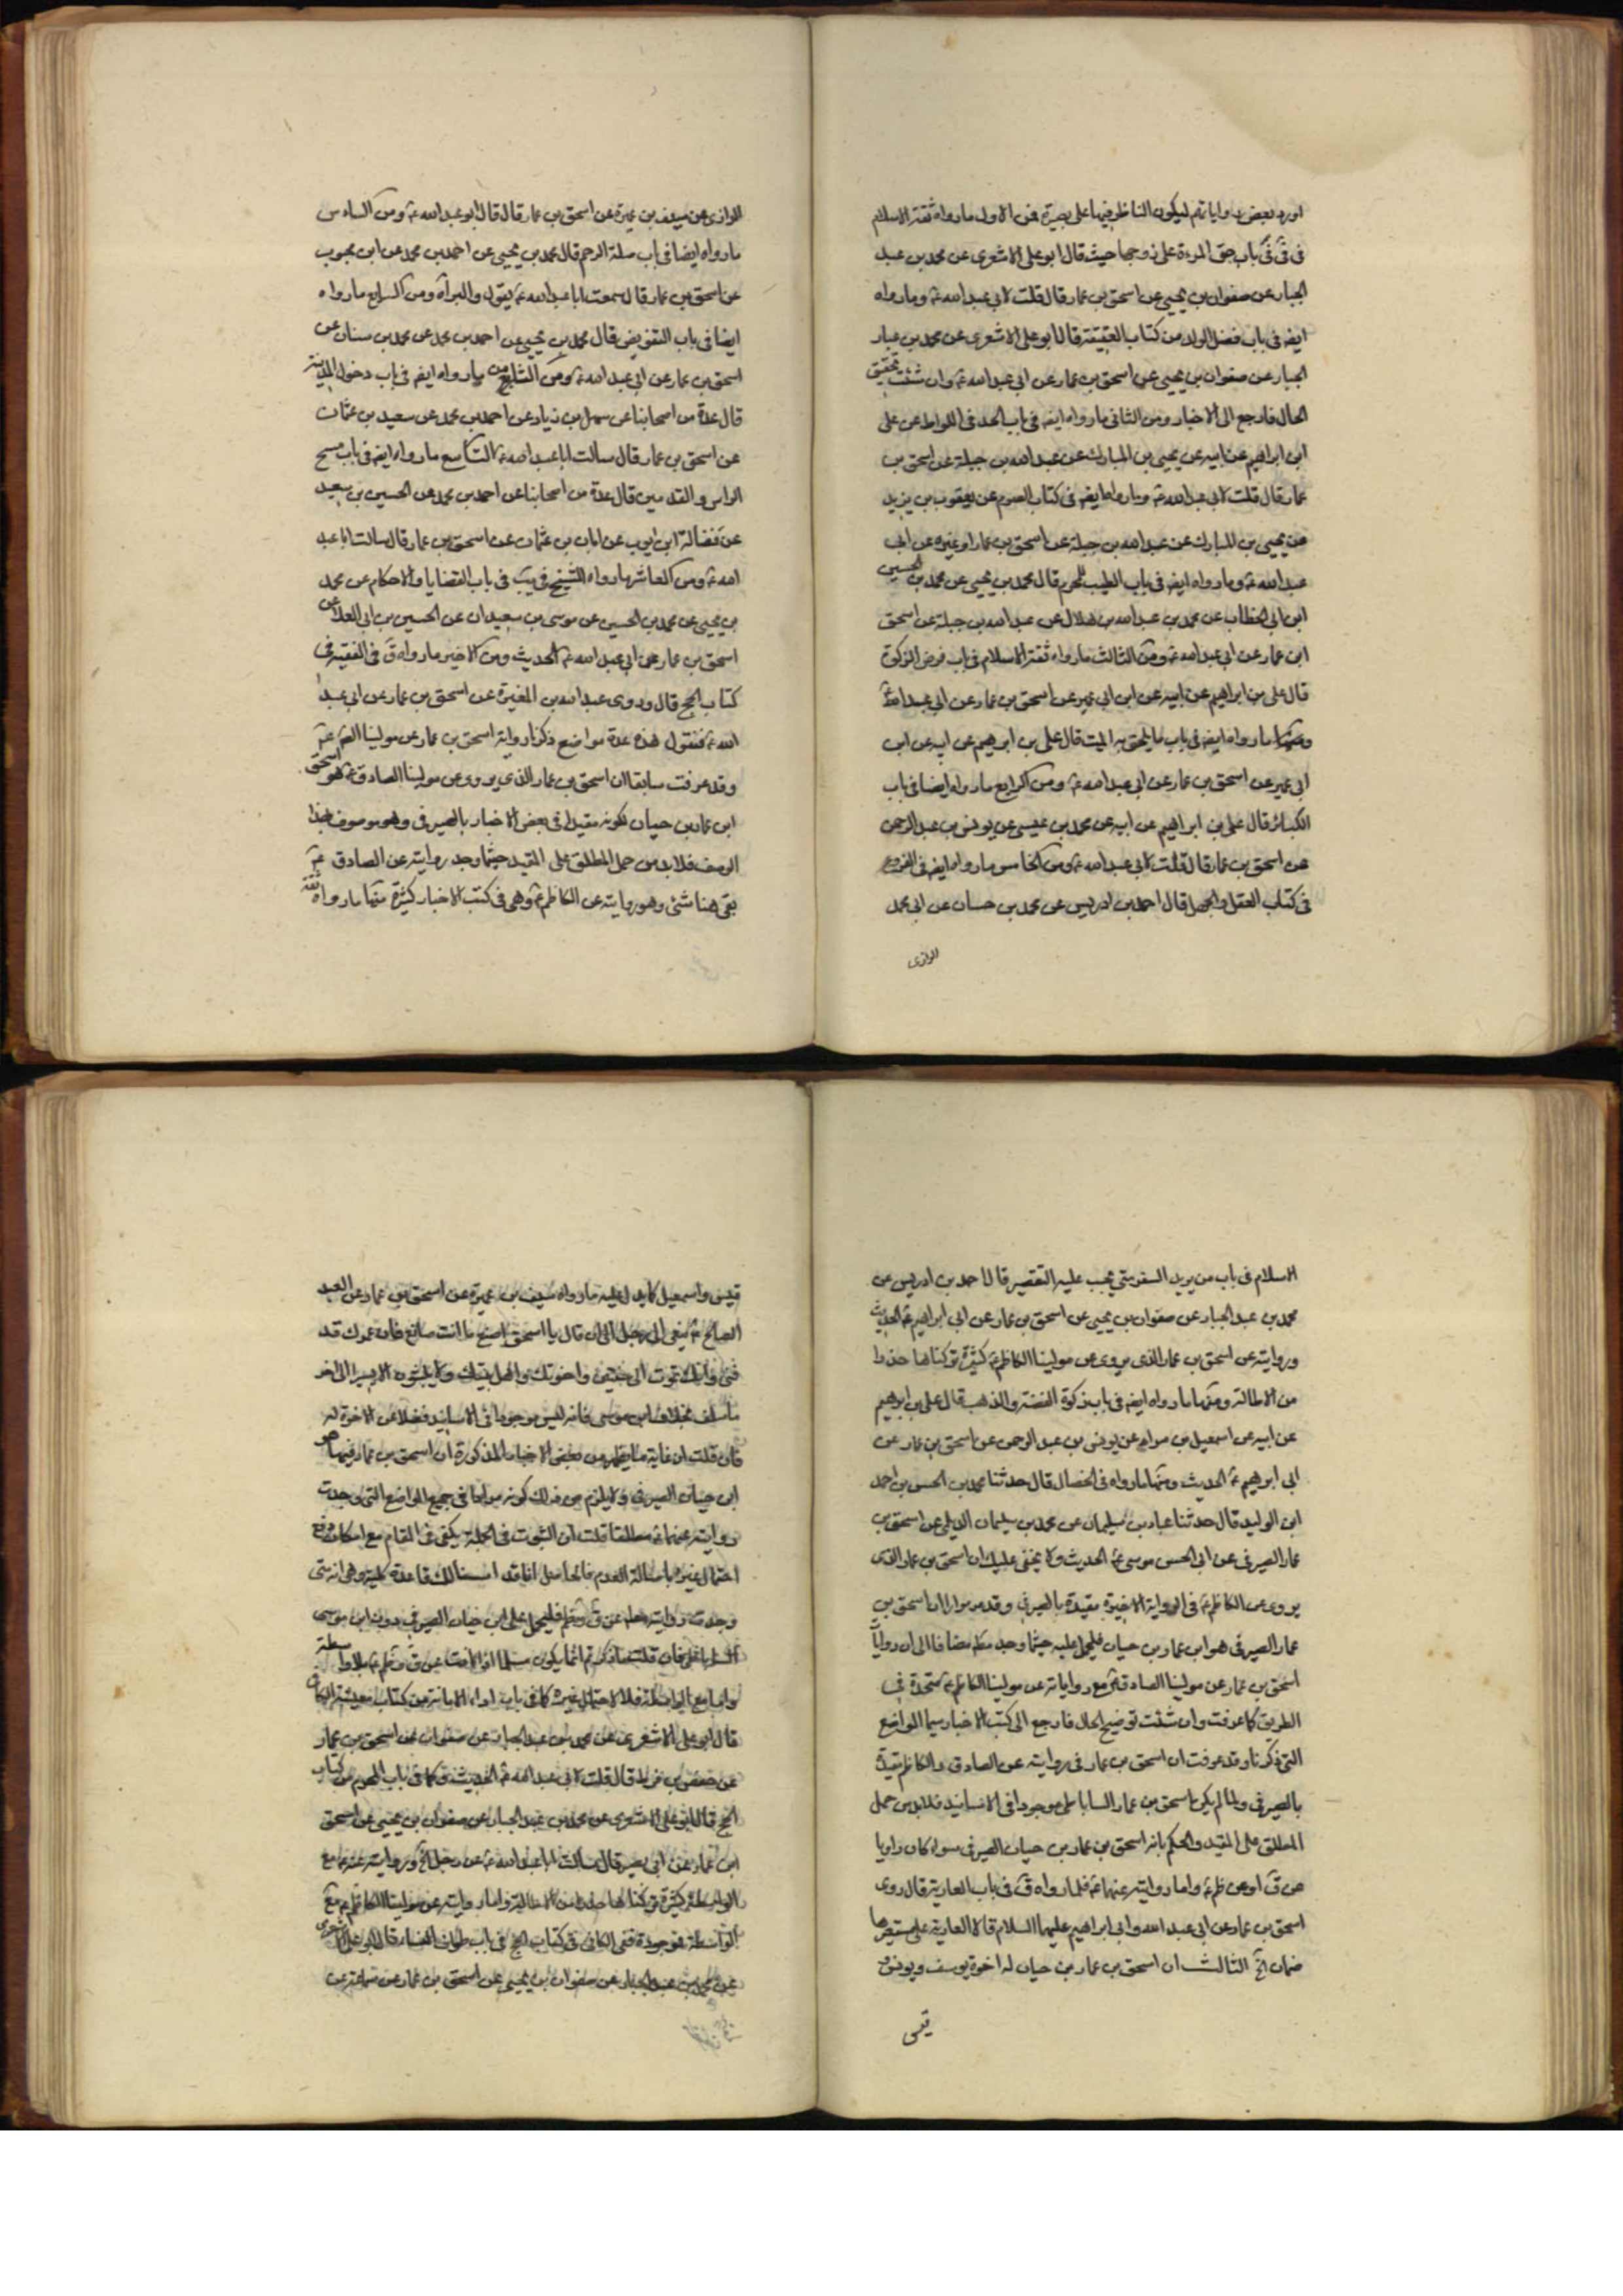 اورد بعض رواياتهم ليكون الناظر فيها على بصيرة فمن الاول ما رواه ثقة الاسلام
فى باب حق المرءة على زوجها حيث قال ابو على الاشعرى عن محمد بن عبد
الجبار عن صفوان بن يحيى عن اسحق بن عمار قال قلت لابى عبد الله ع وما رواه
ايضه فى باب فضل الولد من كتاب العقيقة قال ابو على الاشعرى عن محمد بن عبار
الجبار عن صفوان بن يحيى عن اسحق بن عمار عن ابى عبد الله ع وان شئت تحقيق
الحال فارجع الى الاخبار ومن الثانى ما رواه ايضه فى باب الحد فى اللواط عن على
ابن ابراهيم عن ابيه عن يحيى بن المبارك عن عبد الله بن جبلة عن اسحق بن
عمار قال قلت لابى عبد الله ع وما رواه ايضه فى كتاب الصوم عن يعقوب بن يزيد
عن يحيى بن المبارك عن عبد الله بن جبلة عن اسحق بن عمار او غيره عن ابى
عبد الله ع وما رواه ايضه فى باب الطيب للمحرم قال محمد بن يحيى عن محمد بن الحسين
ابن ابى الخطاب عن محمد بن عبد الله بن هلال عن عبد الله بن جبلة عن اسحق
ابن عمار عن ابى عبد الله ع ومن الثالث ما رواه ثقة الاسلام فى باب فرض الزكوة
قال على بن ابراهيم عن ابيه عن ابن ابى عمير عن اسحق بن عمار عن ابى عبد الله ع
ومنها ما رواه ايضه فى باب ما يلحق به الميت قال على بن ابرهيم عن ابيه عن ابن
ابى عمير عن اسحق بن عمار عن ابى عبد الله ع ومن الرابع ما رواه ايضا فى باب
الكبائر قال على بن ابراهيم عن ابيه عن محمد بن عيسى عن يونس بن عبد الرحمن
عن اسحق بن عمار قال قلت لابى عبد الله ع ومن الخامس ما رواه ايضه فى
فى كتاب العقل والجهل قال احمد بن ادريس عن محمد بن حسان عن ابى محمد
الرازى
الرازى عن سيف بن عميرة عن اسحق بن عمار قال قال ابو عبد الله ع ومن السادس
ما رواه ايضا فى باب صلة الرحم قال محمد بن يحيى عن احمد بن محمد عن ابن محبوب
عن اسحق بن عمار قال سمعت ابا عبد الله ع يقول والبراة ومن السابع ما رواه
ايضا فى باب التفويض قال محمد بن يحيى عن احمد بن محمد عن محمد بن سنان عن
اسحق بن عمار عن ابى عبد الله ع ومن ما رواه ايضه فى باب دخول المدينة
قال عدة من اصحابنا عن سهل بن زياد عن احمد بن محمد عن سعيد بن عثمان
عن اسحق بن عمار قال سالت ابا عبد الله ع التاسع ما رواه ايضه فى باب مسح
الراس والقدمين قال عدة من اصحابنا عن احمد بن محمد عن الحسين بن سعيد
عن فضالة ابن ايوب عن ابان بن عثمان عن اسحق بن عمار قال سالت ابا عبد
الله ع ومن العاشر ما رواه الشيخ فى يب فى باب القضايا والاحكام عن محمد
بن يحيى عن محمد بن الحسين عن موسى بن سعيدان عن الحسين بن ابى العلا عن
اسحق بن عمار عن ابى عبد الله ع الحديث ومن الاخير ما رواه ق فى الفقيه فى
كتاب الحج قال وروى عبد الله بن المغيرة عن اسحق بن عمار عن ابى عبد
الله ع فنقول هذه عدة مواضع ذكرنا رواية اسحق بن عمار عن مولينا الصر ع
وقد عرفت سابقا ان اسحق بن عمار الذى يروى عن مولينا الصادق ع هو اسحق
ابن عمار بن حيان لكونه مقيدا فى بعض الاخبار بالصيرفى وهو موصوف بهذا
الوصف فلا بد من حمل المطلق على المقيد حيثما وجد روايته عن الصادق ع
بقى هنا شئ وهو روايته عن الكاظم ع وهى فى كتب الاخبار كثيرة منها ما رواه ثقة
الاسلام فى باب من يريد السفر متى يجب عليه التقصير قال احمد بن ادريس عن
محمد بن عبد الجبار عن صفوان بن يحيى عن اسحق بن عمار عن ابى ابراهيم ع الحديث
وروايته عن اسحق بن عمار الذى يروى عن مولينا الكاظم ع كثيرة تركناها حذرا
من الاطالة ومنها ما رواه ايضه فى باب زكوة الفضة والذهب قال على بن ابرهيم
عن ابيه عن اسمعيل بن مرار عن يونس بن عبد الرحمن عن اسحق بن عمار عن
ابى ابرهيم ع الحديث ومنها ما رواه فى الخصال قال حدثنا محمد بن الحسن بن احمد
ابن الوليد قال حدثنا عباد بن سليمان عن محمد بن سليمان الديلمى عن اسحق بن
عمار الصيرفى عن ابى الحسن موسى ع الحديث ولا يخفى عليك ان اسحق بن عمار الذى
يروى عن الكاظم ع فى الرواية الاخيرة مقيدة بالصيرفى وقد مر مرارا ان اسحق بن
عمار الصيرفى هو ابن عمار بن حيان فليحمل عليه حيثما وجد مط مضافا الى ان روايات
اسحق بن عمار عن مولينا الصادق ع مع رواياته عن مولينا الكاظم ع متحدة فى
الطريق كما عرفت وان شئت توضيح الحال فارجع الى كتب الاخبار سيما المواضع
التى ذكرنا وقد عرفت ان اسحق بن عمار فى روايته عن الصادق والكاظم مقيد
بالصيرفى ولما لم يكن اسحق بن عمار الساباطى موجودا فى الاسانيد فلا بد من حمل
المطلق على المقيد والحكم بانه اسحق بن عمار بن حيان الصيرفى سواء كان راويا
عن ق او عن ظم ع واما روايته عنهما ع فلما رواه ق فى باب العارية قال روى
اسحق بن عمار عن ابى عبد الله وابى ابراهيم عليهما السلام قالا العارية على مستعيرها
ضمان الخ الثالث ان اسحق بن عمار بن حيان له اخوة يوسف ويونس
قيس
قيس واسمعيل كما يدل عليه ما رواه سيف بن عميرة عن اسحق بن عمار عن العبد
الصالح ع ينعى الى رجل الى ان قال يا اسحق اصنع ما انت صانع فان عمرك قد
فنى وانك تموت الى سنتين واخوتك واهل بيتك ولا يلبثون الا يسيرا الى اخر
ما سلف بخلاف ابن موسى فانه ليس موجودا فى الاسانيد فضلا عن الاخوة له
فان قلت ان غاية ما يظهر من بعض الاخبار المذكورة ان اسحق بن عمار فيهما هو
ابن حيان الصيرفى ولا يلزم من ذلك كونه مرادا فى جميع المواضع التى وجدت
روايته عنهما ع مطلقا قلت ان الثبوت فى الجملة يكفى فى المقام مع امكان دفع
احتمال غيره باصالة العدم فالحاصل انا قد اسسنا لك قاعدة كلية وهى انه متى
وجدت روايته عن ق وظم فليحمل على ابن حيان الصيرفى دون ابن موسى
الساباطى فان قلت ما ذكرتم انما يكون مسلما اذا كانت عن ق وظم ع بلا واسطة
واما مع الواسطة فلا لاحتمال غيره كما فى باب اداء الامانة من كتاب معيشة الكافى
قال ابو على الاشعرى عن محمد بن عبد الجبار عن صفوان عن اسحق بن عمار
عن حفص بن قرط قال قلت لابى عبد الله ع الحديث وكما فى باب المحرم من كتاب
الحج قال ابو على الاشعرى عن محمد بن عبد الجبار عن صفوان بن يحيى عن اسحق
ابن عمار عن ابى بصير قال سالت ابا عبد الله ع عن رجل الخ وروايته عنه ع مع
الواسطة كثيرة تركناها حذرا من الاطالة واما روايته عن مولينا الكاظم ع مع
الواسطة موجودة ففى الكافى فى كتاب الحج فى باب طواف النساء قال ابو على الاشعرى
عن محمد بن عبد الجبار عن صفوان بن يحيى عن اسحق بن عمار عن سماعة عن